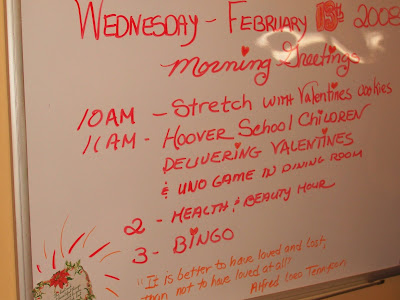 WEDNESDAY - FEBRUARY 13th 2008
Morning Greetings
10AM - Stretch with Valentines Cookies
11AM - HOOVER SCHOOL CHILDREN
DELIVERING VALENTINES
& UNO GAME IN DINING ROOM
2 - HEALTH & BEAUTY HOUR
3 - BINGO
"It is better to have loved and lost,
than not to have loved at all"
Alfred Lord Tennyson